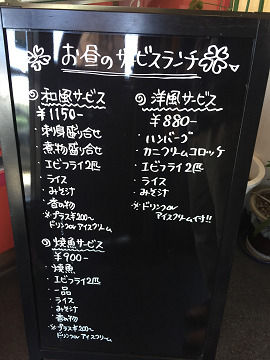 お昼のサービスランチ
◎和風サービス
¥1150-
・刺身盛り合せ
・煮物盛り合せ
・エビフライ2匹
・ライス
・みそ汁
・香の物
※プラス¥200〜
ドリンクorアイスクリーム
◎焼魚サービス
¥900-
・焼魚
・エビフライ2匹
・一品
・ライス
・みそ汁
・香の物
※プラス¥200〜
ドリンクorアイスクリーム
◎洋風サービス
¥880-
・ハンバーグ
・カニクリームコロッケ
・エビフライ2匹
・ライス
・みそ汁
※ドリンクor
アイスクリーム付!!